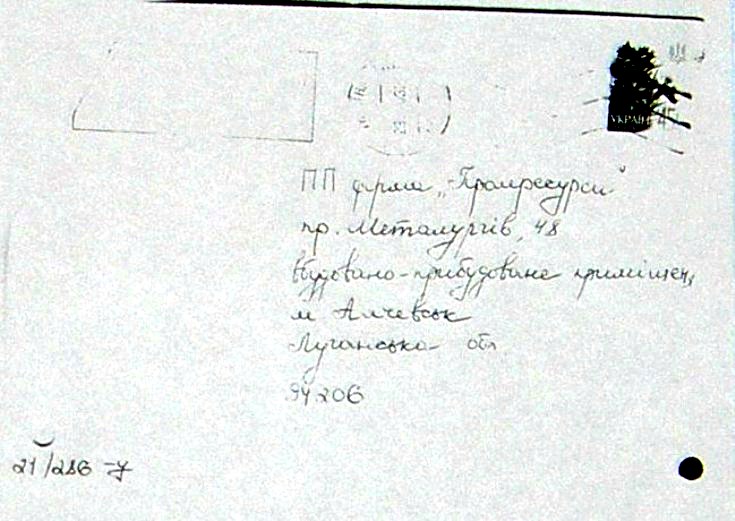 УКРАЇН
ПП фірма „Промресурси"
пр. Металургів, 48
вбудовано-прибудоване приміщен,
м Алчевськ
Луганська обл
94206
21/286-у